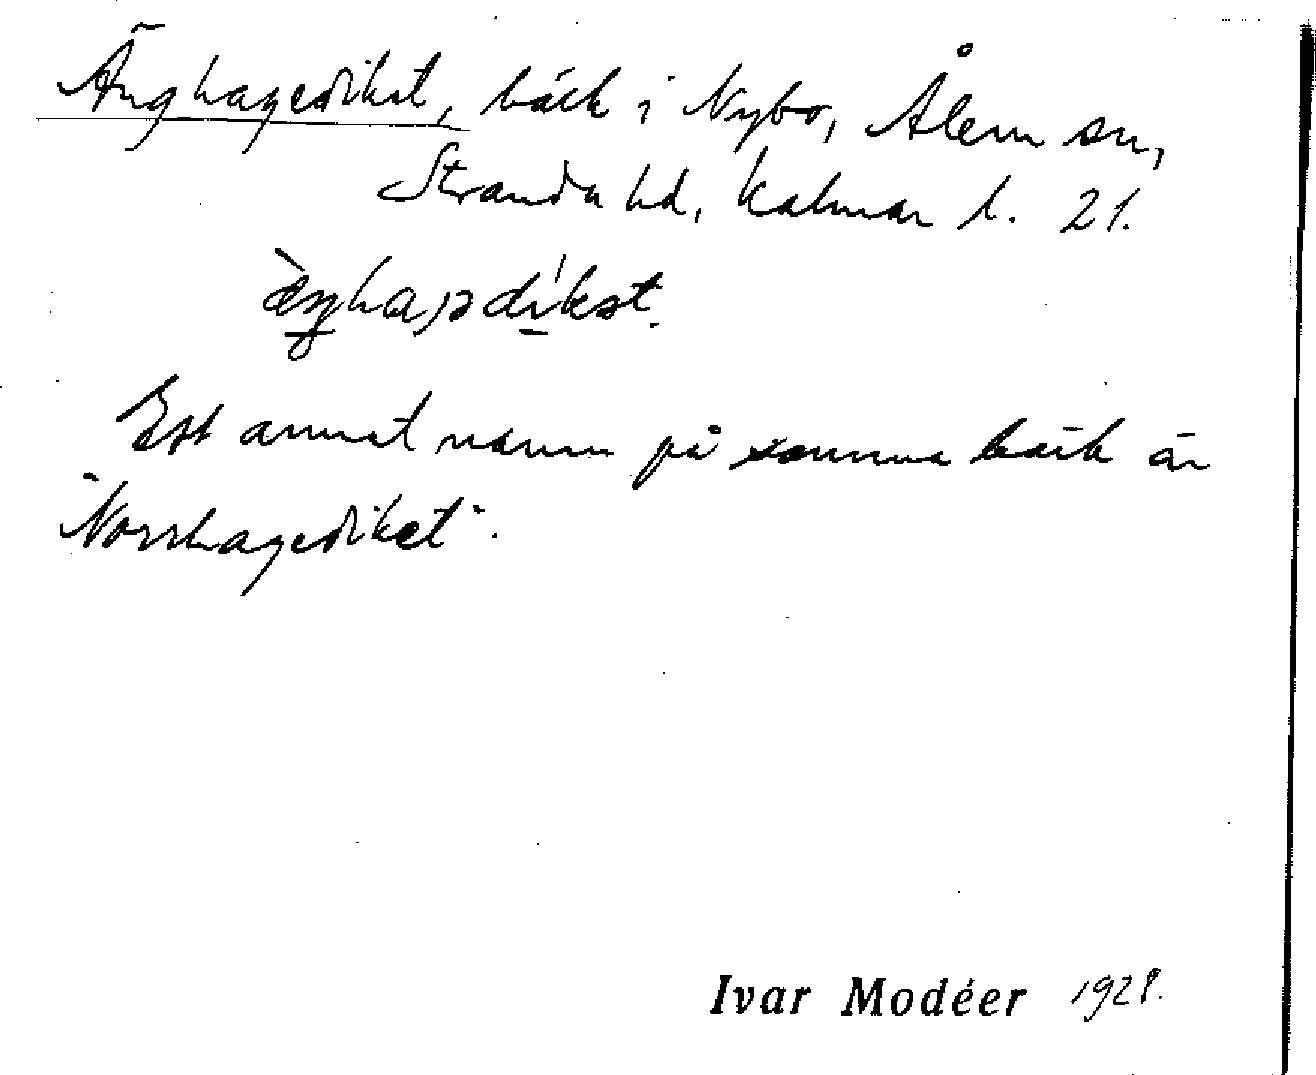 Änghagediket, bäck i Nybo, Ålem sn,
Stranda hd, Kalmar l. 21.
Ett annat namn på samma bäck är
"Norrhagediket".
Ivar Modéer